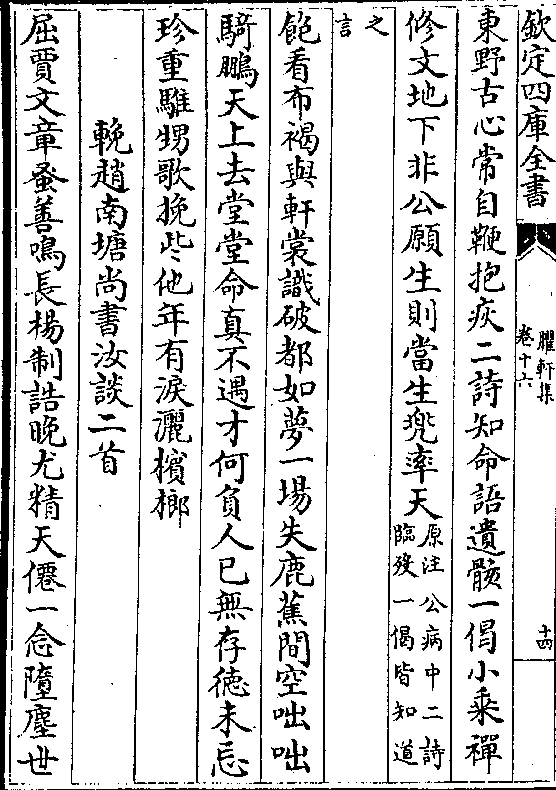 欽定四庫全書
臞軒集
卷十六
十四
東野古心常自鞭抱疾二詩知命語遺骸一偈小乘禪
修文地下非公願生則當生兜率天原注公病中二詩
臨歿一偈皆知道
之
言
飽看布褐與軒裳識破都如夢一場失鹿蕉間空咄咄
騎鵬天上去堂堂命真不遇才何負人已無存徳未忘
珍重騅甥歌挽些他年有淚灑檳榔
輓趙南塘尚書汝談二首
屈賈文章蚤善鳴長楊制誥晚尤精天僊一念墮塵世